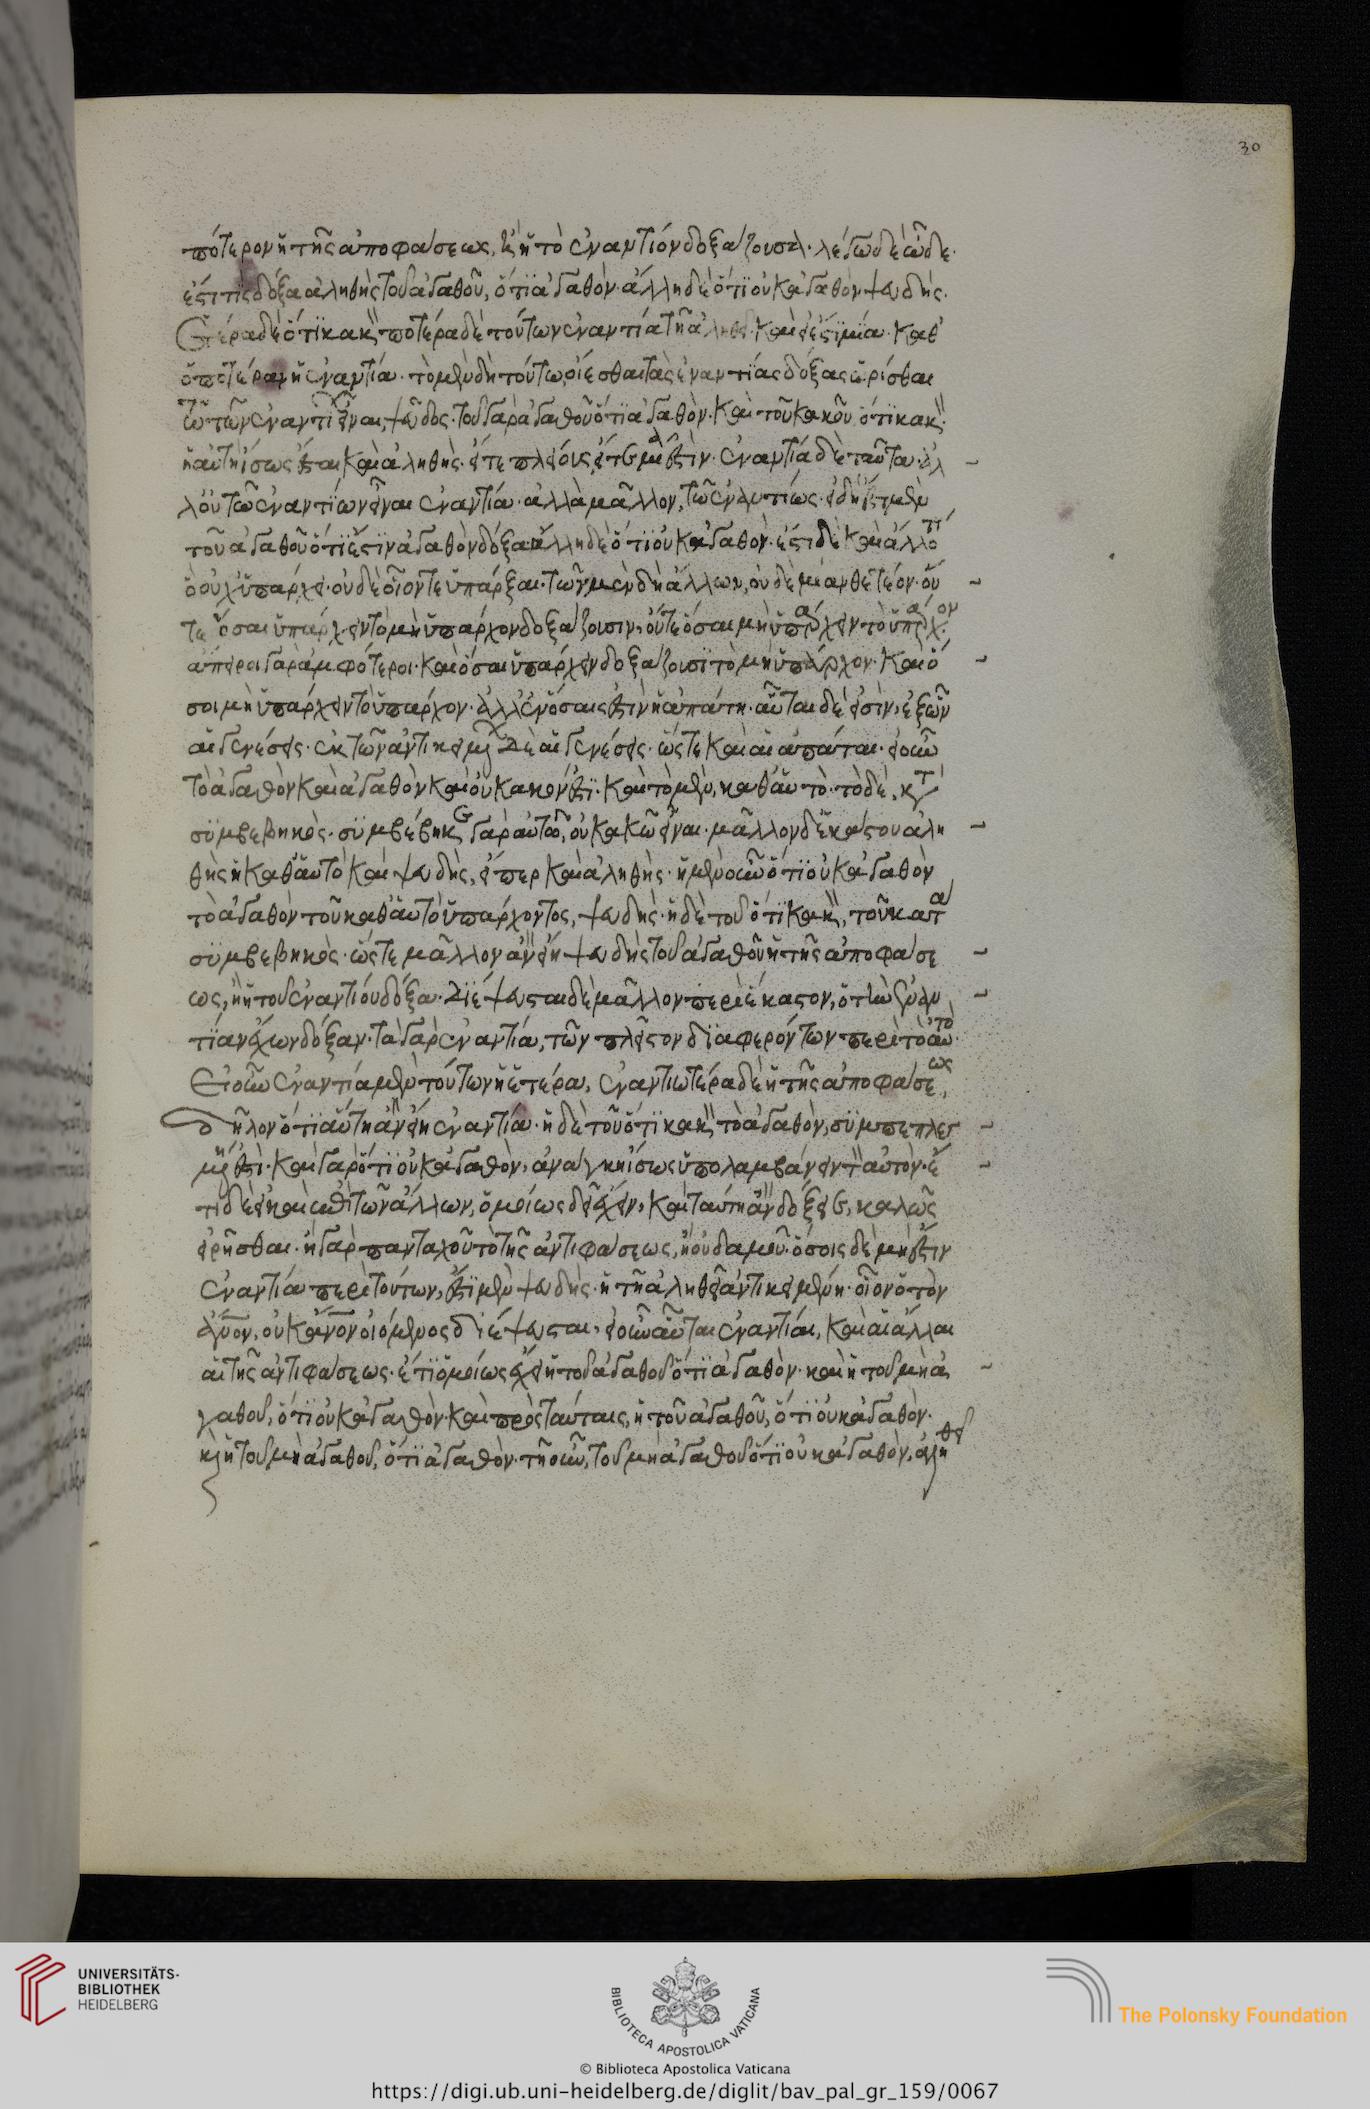 30
πότερον ἡ τῆς ἀποφάσεως, ἢ ἡ τὸ ἐναντίον δοξάζουσα· λέγω δὲ ὧδε·
ἔστι τις δόξα ἀληθὴς τοῦ ἀγαθοῦ, ὅτι ἀγαθόν· ἄλλη δὲ ὅτι οὐκ ἀγαθὸν ψευδής·
Ἑτέρα δὲ ὅτι κακ· ποτέρα δὲ τούτων ἐναντία τῆ ἀληθεῖ· καὶ εἰ ἔστι μία· καθ'
ὁποτέραν ἡ ἐναντία· τὸ μὲν δὴ τούτω οἴεσθαι τὰς ἐναντίας δόξας ὡρίσθαι
τῶ τῶν ἐναντίων εἶναι, ψεῦδος· τοῦ γὰρ ἀγαθοῦ ὅτι ἀγαθὸν· καὶ τοῦ κακοῦ ὅτι κακ·
ἡ αὐτὴ ἴσως ἔσται καὶ ἀληθὴς· εἴτε πλείους, εἴτε μία ἐστὶν· ἐναντία δὲ ταῦτα· ἀλ
λ' οὐ τῶ ἐναντίων εἶναι ἐναντία· ἀλλὰ μᾶλλον, τῶ ἐναντίως· εἰ δὴ ἔστι μὲν
τοῦ ἀγαθοῦ ὅτι ἐστὶν ἀγαθὸν δόξα· ἄλλη δὲ ὅτι οὐκ ἀγαθὸν· ἔστι δὲ καὶ ἄλλο τί
ὃ οὐχ ὑπάρχει· οὐδὲ οἷόν τε ὑπάρξαι· τῶν μὲν δὴ ἄλλων, οὐδεμίαν θετέον· οὔ
τε ὅσαι ὑπάρχειν τὸ μὴ ὑπάρχον δοξάζουσιν, οὔτε ὅσαι μὴ ὑπάρχειν τὸ ὑπάρχον·
ἄπειροι γὰρ ἀμφότεροι· καὶ ὅσαι ὑπάρχειν δοξάζουσι τὸ μὴ ὑπάρχον· καὶ ὅ
σαι μὴ ὑπάρχειν τὸ ὑπάρχον· ἀλλ' ἐν ὅσαις ἐστὶν ἡ ἀπάτη· αὗται δέ εἰσὶν, ἐξ ὧν
αἱ γενέσεις· ἐκ τῶν ἀντικειμένων δὲ αἱ γενέσεις· ὥστε καὶ αἱ ἀπάται· εἰ οὖν
τὸ ἀγαθὸν καὶ ἀγαθὸν καὶ οὐ κακόν ἐστι· καὶ τὸ μὲν, καθ' αὑτὸ· τὸ δέ, κατὰ
συμβεβηκὸς· συμβέβηκε γὰρ αὐτῶ, οὐ κακῶ εἶναι· μᾶλλον δὲ ἑκάστου ἀλη
θὴς ἡ καθ' αὑτὸ καὶ ψευδὴς, εἴπερ καὶ ἀληθὴς· ἡ μὲν οὖν ὅτι οὐκ ἀγαθὸν
τὸ ἀγαθὸν τοῦ καθ' αὑτὸ ὑπάρχοντος, ψευδὴς· ἡ δὲ τοῦ ὅτι κακ, τοῦ κατὰ
συμβεβηκὸς· ὥστε μᾶλλον ἂν εἴη ψευδὴς τοῦ ἀγαθοῦ ἡ τῆς ἀποφάσε
ως, ἢ ἡ τοῦ ἐναντίου δόξα· διέψευσται δὲ μᾶλλον περὶ ἕκαστον, ὁ τὴν ἐναν
τίαν ἔχων δόξαν· τὰ γὰρ ἐναντία, τῶν πλεῖστον διαφερόντων περὶ τὸ αὐτὸ·
Εἰ οὖν ἐναντία μὲν τούτων ἡ ἑτέρα, ἐναντιωτέρα δὲ ἡ τῆς ἀποφάσεως,
δῆλον ὅτι αὕτη ἂν εἴη ἐναντία· ἡ δὲ τοῦ ὅτι κακ τὸ ἀγαθὸν, συμπεπλεγ
μένη ἐστὶ· καὶ γὰρ ὅτι οὐκ ἀγαθὸν, ἀνάγκη ἴσως ὑπολαμβάνειν τὸν αὐτὸν· ἔ
τι δὲ εἰ καὶ ἐπὶ τῶν ἄλλων, ὁμοίως δεῖ ἔχειν, καὶ ταύτη ἂν δόξειε, καλῶς
εἰρῆσθαι· ἢ γὰρ πανταχοῦ τὸ τῆς ἀντιφάσεως, ἢ οὐδαμοῦ· ὅσοις δὲ μή ἐστιν
ἐναντία περὶ τούτων, ἔστι μὲν ψευδὴς· ἡ τῆ ἀληθεῖ ἀντικειμένη· οἷον ὁ τὸν
ἄνον, οὐκ ἄνον οἰόμενος διέψευσται· εἰ οὖν αὗται ἐναντίαι, καὶ αἱ ἄλλαι
αἱ τῆς ἀντιφάσεως· ἔτι ὁμοίως ἔχει ἡ τοῦ ἀγαθοῦ ὅτι ἀγαθὸν· καὶ ἡ τοῦ μὴ ἀ
γαθοῦ, ὅτι οὐκ ἀγαθὸν· καὶ πρὸς ταύταις, ἡ τοῦ ἀγαθοῦ, ὅτι οὐκ ἀγαθὸν·
καὶ ἡ τοῦ μὴ ἀγαθοῦ, ὅτι ἀγαθὸν· τῆ οὖν, τοῦ μὴ ἀγαθοῦ ὅτι οὐκ ἀγαθὸν, ἀληθεῖ
UNIVERSITÄTS-
BIBLIOTHEK
HEIDELBERG
BIBLIOTECA APOSTOLICA VATICANA
The Polonsky Foundation
© Biblioteca Apostolica Vaticana
https://digi.ub.uni-heidelberg.de/diglit/bav_pal_gr_159/0067